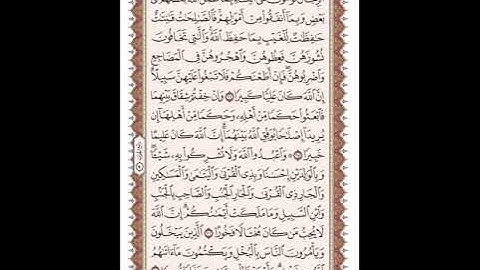 بَعْضٍ وَبِمَآ أَنفَقُوا۟ مِنْ أَمْوَٰلِهِمْ فَٱلصَّـٰلِحَـٰتُ قَـٰنِتَـٰتٌ
حَـٰفِظَـٰتٌ لِّلْغَيْبِ بِمَا حَفِظَ ٱللَّهُ وَٱلَّـٰتِى تَخَافُونَ
نُشُوزَهُنَّ فَعِظُوهُنَّ وَٱهْجُرُوهُنَّ فِى ٱلْمَضَاجِعِ
وَٱضْرِبُوهُنَّ فَإِنْ أَطَعْنَكُمْ فَلَا تَبْغُوا۟ عَلَيْهِنَّ سَبِيلًا
إِنَّ ٱللَّهَ كَانَ عَلِيًّا كَبِيرًا ٣٤ وَإِنْ خِفْتُمْ شِقَاقَ بَيْنِهِمَا
فَٱبْعَثُوا۟ حَكَمًا مِّنْ أَهْلِهِۦ وَحَكَمًا مِّنْ أَهْلِهَآ إِن
يُرِيدَآ إِصْلَـٰحًا يُوَفِّقِ ٱللَّهُ بَيْنَهُمَآ إِنَّ ٱللَّهَ كَانَ عَلِيمًا
خَبِيرًا ٣٥ وَٱعْبُدُوا۟ ٱللَّهَ وَلَا تُشْرِكُوا۟ بِهِۦ شَيْـًٔا
وَبِٱلْوَٰلِدَيْنِ إِحْسَـٰنًا وَبِذِى ٱلْقُرْبَىٰ وَٱلْيَتَـٰمَىٰ وَٱلْمَسَـٰكِينِ
وَٱلْجَارِ ذِى ٱلْقُرْبَىٰ وَٱلْجَارِ ٱلْجُنُبِ وَٱلصَّاحِبِ بِٱلْجَنۢبِ
وَٱبْنِ ٱلسَّبِيلِ وَمَا مَلَكَتْ أَيْمَـٰنُكُمْ إِنَّ ٱللَّهَ
لَا يُحِبُّ مَن كَانَ مُخْتَالًا فَخُورًا ٣٦ ٱلَّذِينَ يَبْخَلُونَ
وَيَأْمُرُونَ ٱلنَّاسَ بِٱلْبُخْلِ وَيَكْتُمُونَ مَآ ءَاتَىٰهُمُ